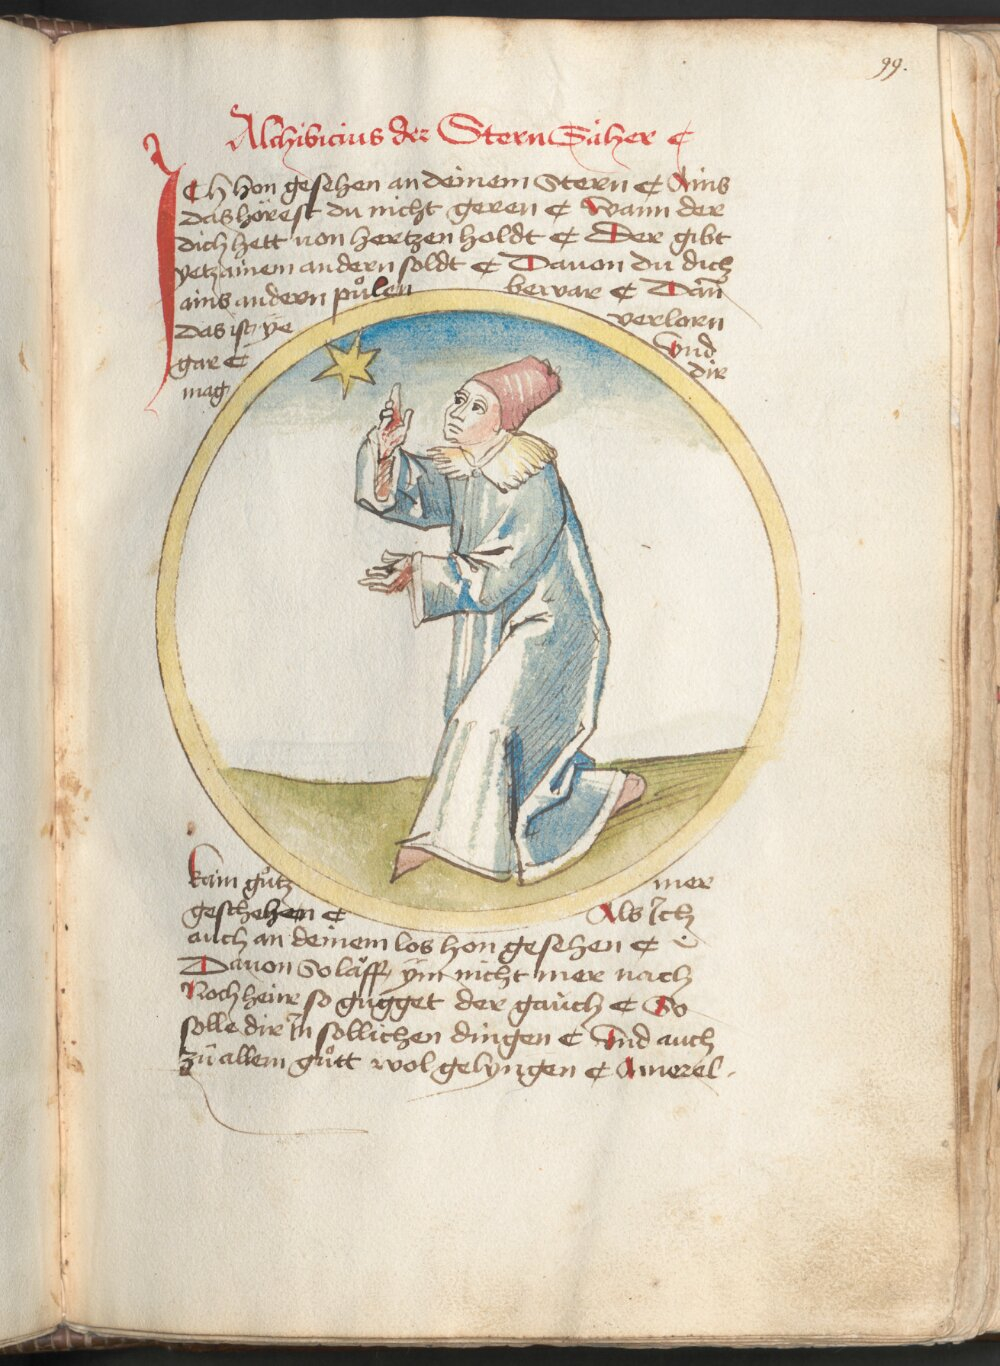 99.
Alchibicius der Stern Säher ₵
ICh hon gesehen an deinem Stern ₵ Ains
das hörest du nicht geren ₵ Wann der
dich hett von hertzen holdt ₵ Der gibt
yetz ainem andern soldt ₵ Dauon du dich
ains andern půlen bewar ₵ Dañ
das ist ye verlorn
gar ₵ Vnd
mag dir
kain gůtz mer
geschehen ₵ Als Ich
auch an deinem los hon gesehen ₵
Dauon So läff ym nicht mer nach
Noch heür so gugget der gauch ₵ So
solle dir In sollichen dingen ₵ Vnd auch
zü allem gůtt wol gelyngen ₵ Amerel.